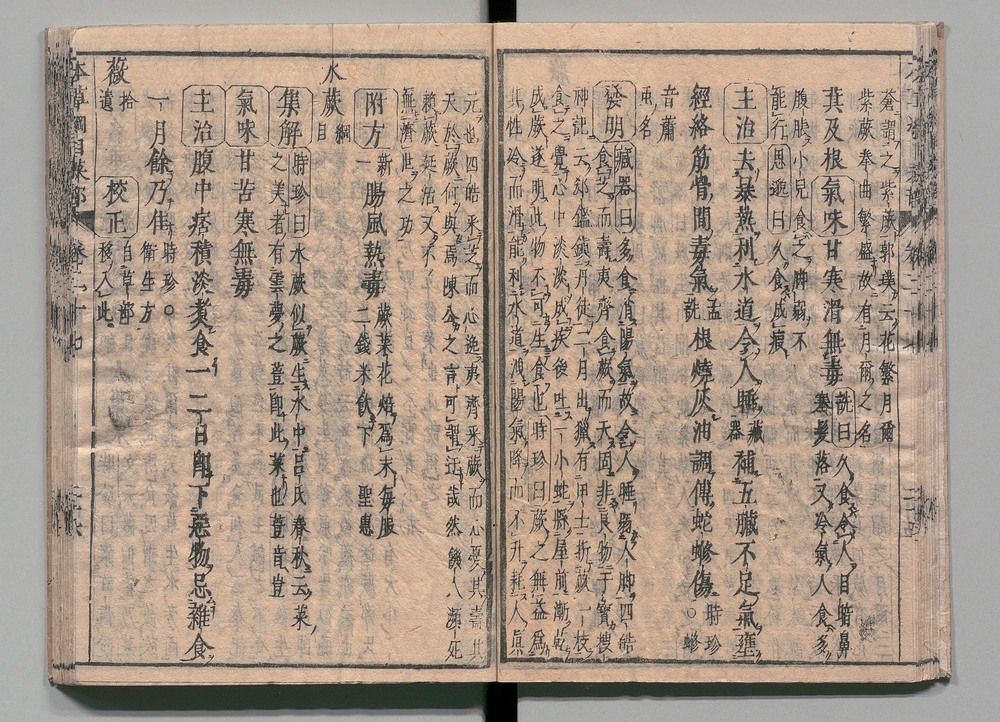 蒼謂之紫蕨郭璞云花繁月爾
紫蕨拳曲繁盛故有月爾之名
萁及根 氣味 甘寒滑無毒 詵曰久食令人目暗鼻
塞髮落又冷氣人食多
腹脹小兒食之脚弱不
能行 思邈曰久食成瘕
主治 去暴熱利水道令人睡 藏器 補五臟不足氣壅
經絡筋骨間毒氣 孟詵 根燒灰油調傅蛇䗤傷 時珍 ○䗤
音蕭
虫名
發明 藏器曰多食消陽氣故令人睡弱人脚四皓
食芝而壽夷齊食蕨而夭固非良物干寶搜
神記云郗鑑鎮丹徒二月出獵有甲士折蕨一枝
食之覺心中淡淡成疾後吐一小蛇懸屋前漸乾
成蕨遂明此物不可生食也時珍曰蕨之無益爲
其性冷而滑能利水道洩陽氣降而不升耗人眞
元也四皓采芝而心逸夷齊采蕨而心憂其壽其
夭於蕨何與焉陳公之言可謂迂哉然饑人瀕死
賴蕨延活又不
無濟世之功
附方 新一 腸風熱毒 蕨菜花焙爲末每服
二錢米飲下 聖惠
水蕨 綱目
集解 時珍曰水蕨似蕨生水中呂氏春秋云菜
之美者有雲夢之荳即此菜也荳音豈
氣味 甘苦寒無毒
主治 腹中痞積淡煮食一二日即下惡物忌雜食
一月餘乃佳 時珍○
衛生方
薇 拾遺 校正 自草部
移入此